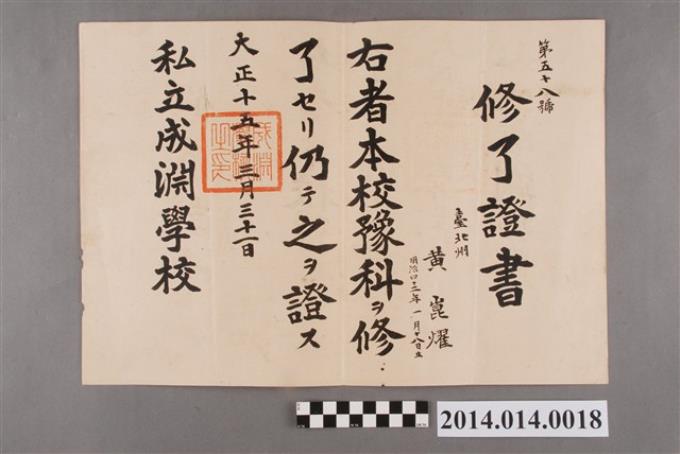 第五十八號
修了證書
臺北州
黄崑燿
明治四十三年一月十八日生
右者本校豫科ヲ修
了セリ仍テ之ヲ證ス
大正十五年三月三十一日
私立成淵學校
2014.014.0018